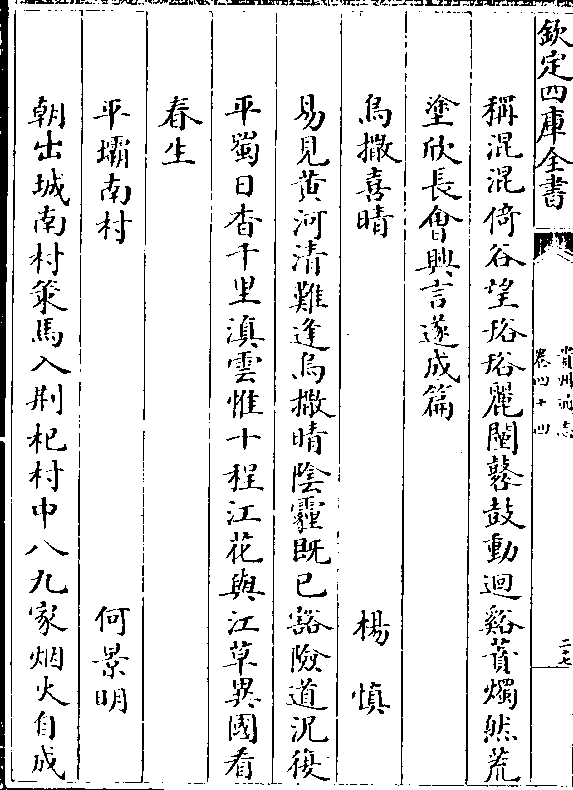 欽定四庫全書
貴州通志
卷四十四
二十七
稱混混倚谷望㟏㟏麗闉鼛鼓動迴谿蕡燭然荒
塗欣長會興言遂成篇
烏撒喜晴 楊慎
易見黄河清難逢烏撒晴陰霾既已豁險道況復
平蜀日杳千里滇雲惟十程江花與江草異國看
春生
平壩南村 何景明
朝出城南村策馬入荆杞村中八九家烟火自成